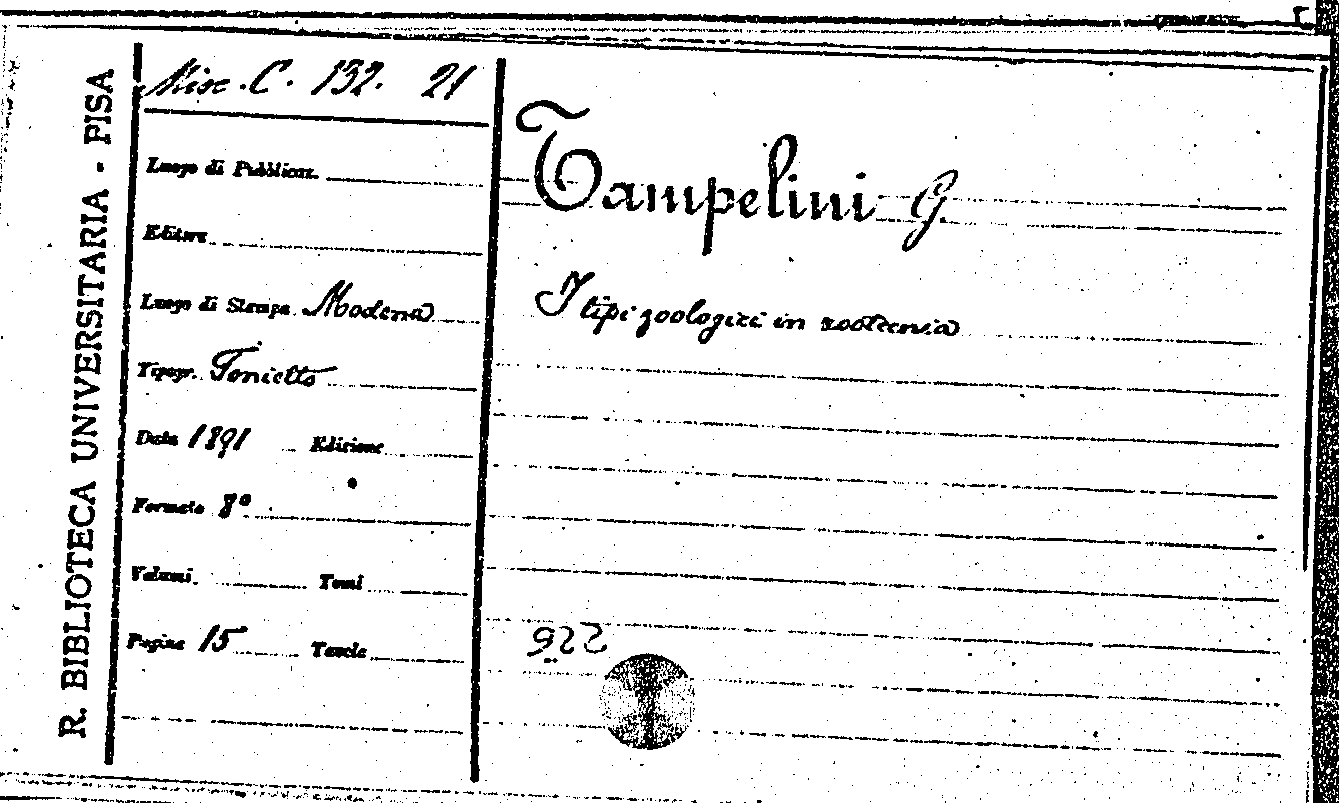 R. BIBLIOTECA UNIVERSITARIA - PISA
Misc. C. 132. 21
Luogo di Pubblicaz.
Editore
Luogo di Stampa Modena
Tipogr. Tonietto
Data 1891 Edizione
Formato 8º
Volumi Tomi
Pagine 15 Tavole
Tampelini G.
I tipi zoologici in zootecnia
922